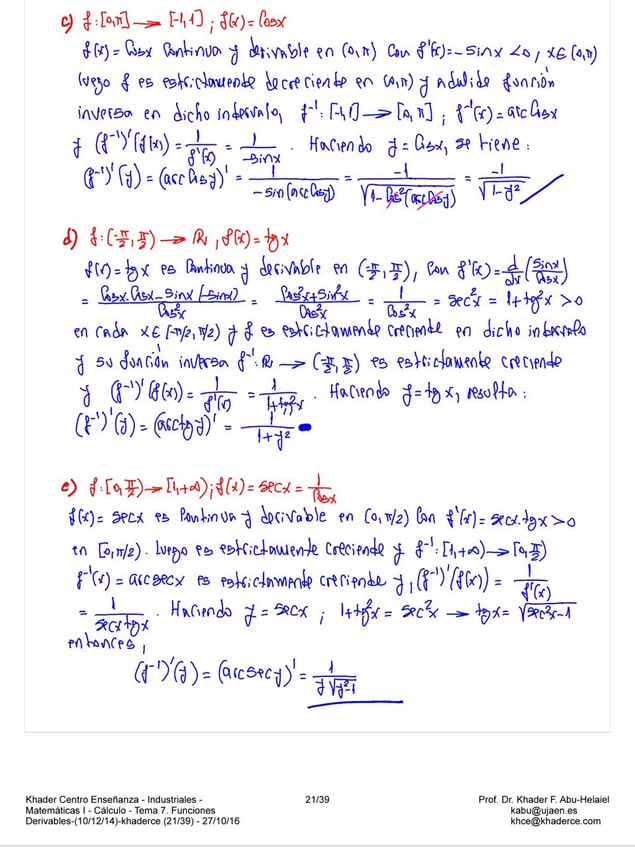 c) f: [0,π] → [-1,1] ; f(x) = Cosx
f(x) = Cosx Continua y derivable en (0,π) Con f'(x) = -sinx < 0, x∈(0,π)
luego f es estrictamente decreciente en (0,π) y admite función
inversa en dicho intervalo, f⁻¹: [-1,1] → [0,π] ; f⁻¹(x) = arc Cosx
y (f⁻¹)'(f(x)) = 1/f'(x) = 1/-sinx . Haciendo y = Cosx, se tiene :
(f⁻¹)'(y) = (arc Cosy)' = 1/-sin(arc Cosy) = -1/√(1-Cos²(arc Cosy)) = -1/√(1-y²)
d) f: (-π/2, π/2) → R, f(x) = tgx
f(x) = tgx es Continua y derivable en (-π/2, π/2), Con f'(x) = d/dx (sinx/Cosx)
= Cosx.Cosx - sinx(-sinx)/Cos²x = Cos²x + sin²x/Cos²x = 1/Cos²x = sec²x = 1+tg²x > 0
en cada x∈(-π/2, π/2) y f es estrictamente creciente en dicho intervalo
y su función inversa f⁻¹: R → (-π/2, π/2) es estrictamente creciente
y (f⁻¹)'(f(x)) = 1/f'(x) = 1/1+tg²x . Haciendo y = tgx, resulta :
(f⁻¹)'(y) = (arctgy)' = 1/1+y²
e) f: [0, π/2) → [1,+∞) ; f(x) = secx = 1/Cosx
f(x) = secx es Continua y derivable en (0, π/2) Con f'(x) = secx.tgx > 0
en [0, π/2). Luego es estrictamente creciente y f⁻¹: [1,+∞) → [0, π/2)
f⁻¹(x) = arcsecx es estrictamente creciente y, (f⁻¹)'(f(x)) = 1/f'(x)
= 1/secx tgx . Haciendo y = secx ; 1+tg²x = sec²x → tgx = √(sec²x-1)
entonces,
(f⁻¹)'(y) = (arcsecy)' = 1/y√(y²-1)
Khader Centro Enseñanza - Industriales -
Matemáticas I - Cálculo - Tema 7. Funciones
Derivables-(10/12/14)-khaderce (21/39) - 27/10/16
21/39
Prof. Dr. Khader F. Abu-Helaiel
kabu@ujaen.es
khce@khaderce.com